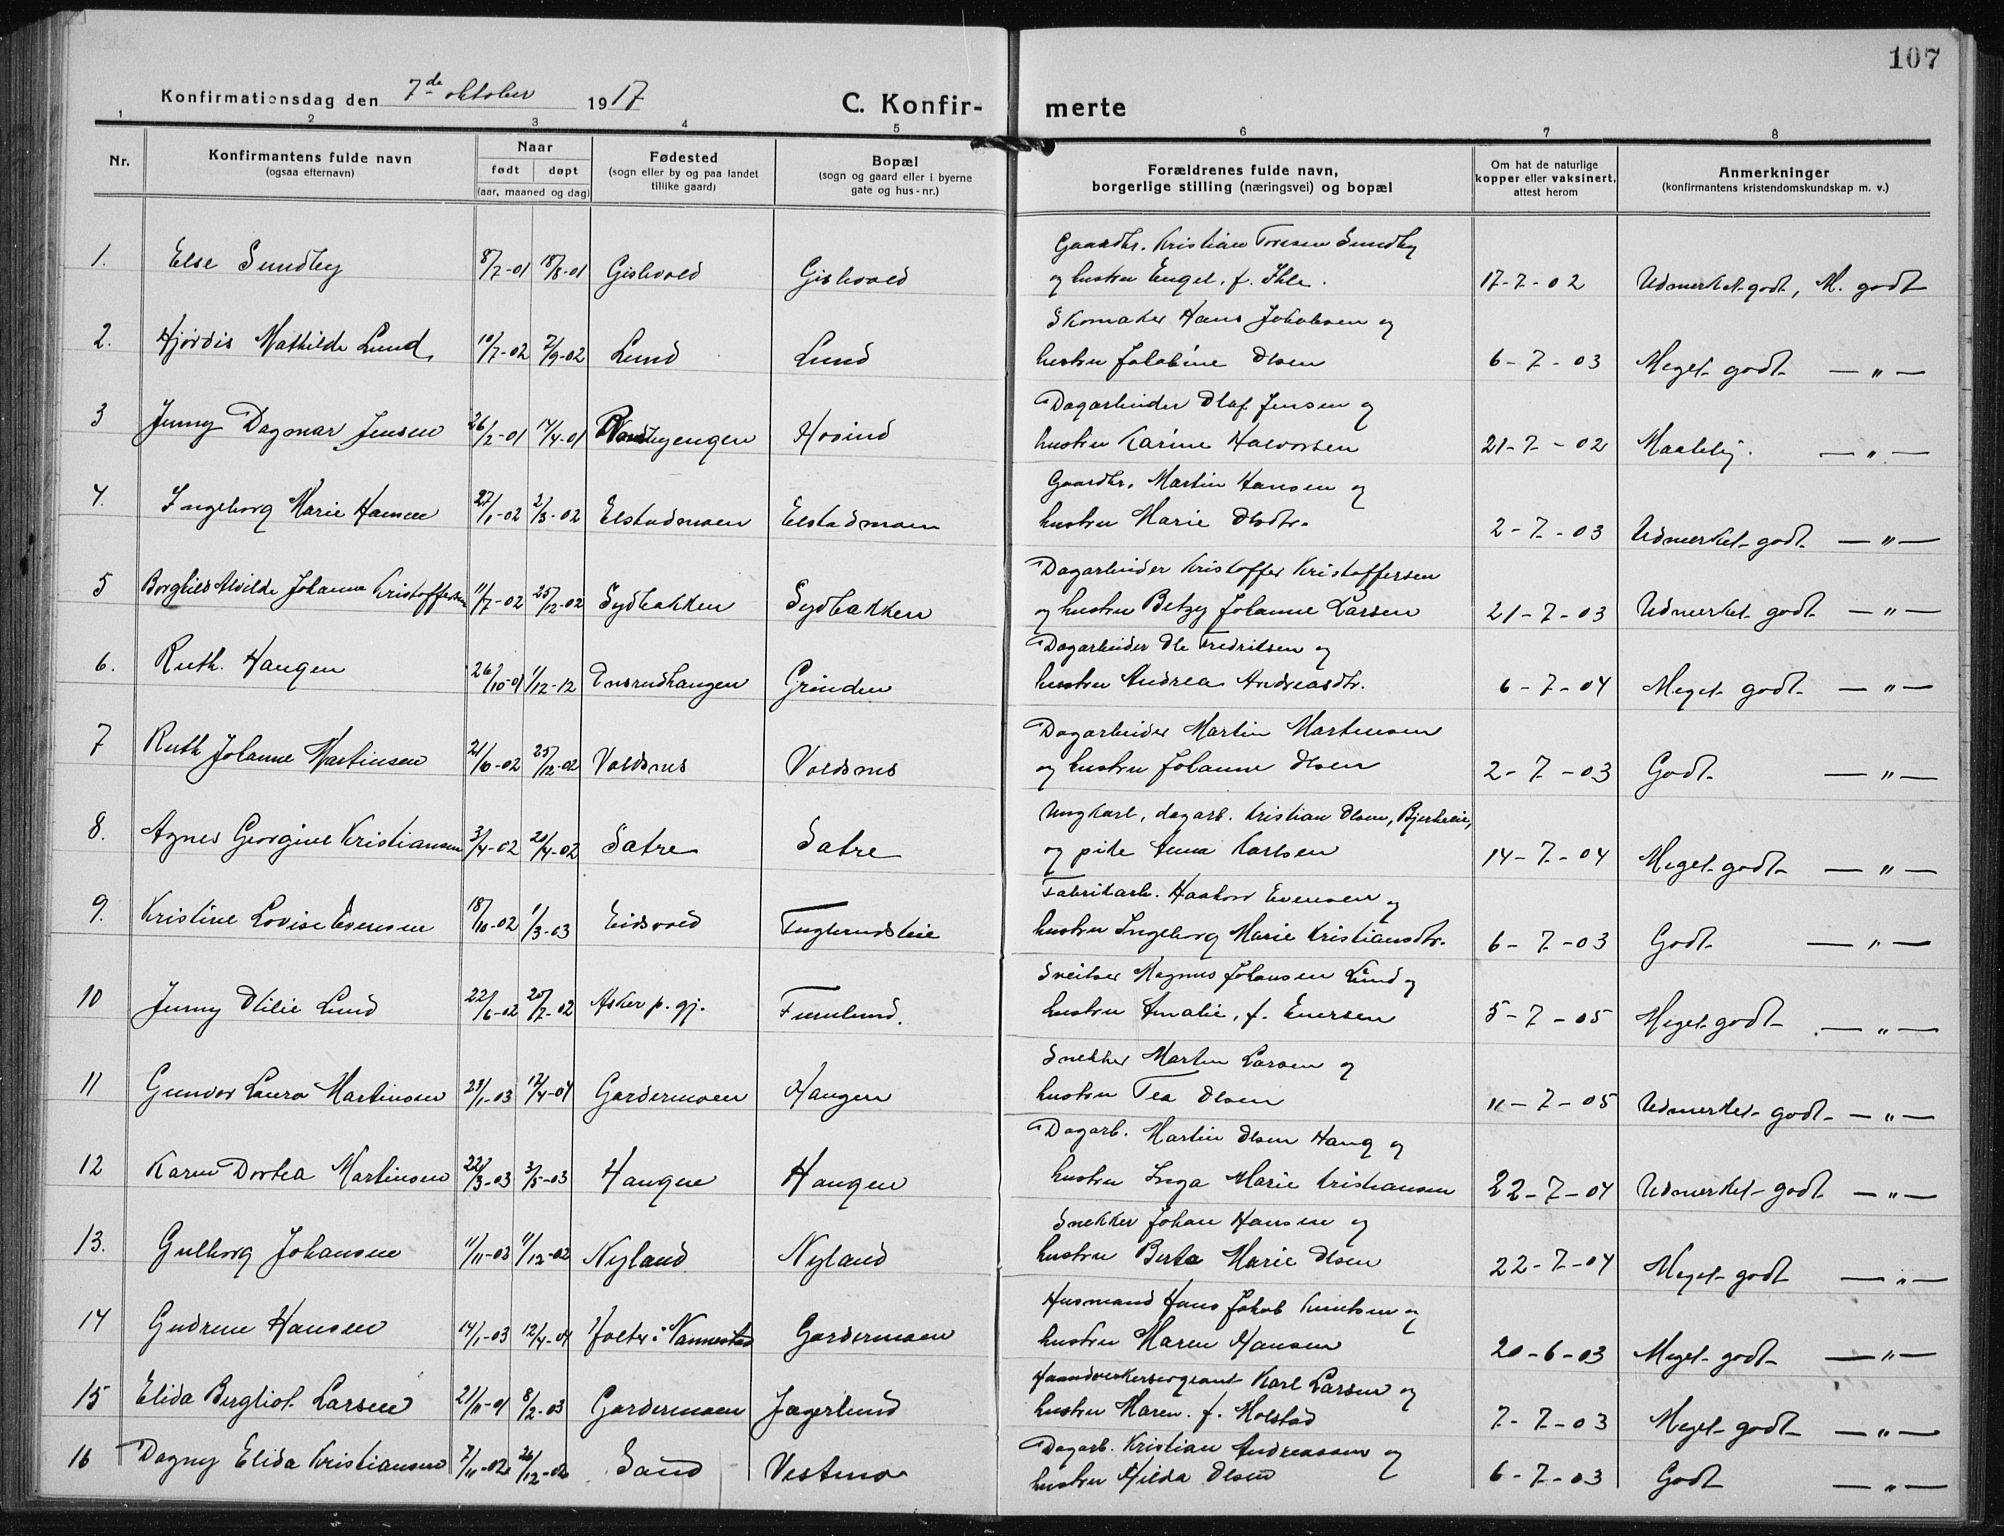 107
Konfirmationsdag den 7de oktober 1917
C. Konfir- merte
1 2 3 4 5 6 7 8
Nr.
Konfirmantens fulde navn
(ogsaa efternavn)
Naar
født døpt
(aar, maaned og dag)
Fødested
(sogn eller by og paa landet
tillike gaard)
Bopæl
(sogn og gaard eller i byerne
gate og hus-nr.)
Forældrenes fulde navn,
borgerlige stilling (næringsvei) og bopæl
Om hat de naturlige
kopper eller vaksinert,
attest herom
Anmerkninger
(konfirmantens kristendomskundskap m. v.)
Gaardbr. Kristian Toresen Sundby
1. Else Sundby 8/7-01 18/8-01 Gislevold Gislevold og hustru Engel, f. Ihle. 17-7-02 Udmerket godt, M. godt
Skomaker Hans Jakobsen og
2. Hjørdis Mathilde Lund 10/7-02 7/9-02 Lund Lund hustru Jakobine Olsen 6-7-03 Meget godt — " —
Dagarbeider Olaf Jensen og
3 Jenny Dagmar Jensen 26/2-01 14/4-01 Hovind hustru Karine Halvorsen 21-7-02 Maatelig. — " —
Gaardbr. Martin Hansen og
4. Ingeborg Marie Hansen 27/1-02 2/3-02 Elstadmoen Elstadmoen hustru Marie Olsdtr. 2-7-03 Udmerket godt — " —
Dagarbeider Kristoffer Kristoffersen
5 Borghild Alvilde Johanne Kristoffersen 11/7-02 25/12-02 Sydbakken Sydbakken og hustru Betzy Johanne Larsen 21-7-03 Udmerket godt — " —
Dagarbeider Ole Fredriksen og
6. Ruth. Haugen 26/10-01 1/12-12 Ensrudhaugen Grinden hustru Andrea Andreasdtr. 6-7-04 Meget godt — " —
Dagarbeider Martin Martinsen
7 Ruth Johanne Martinsen 21/10-02 25/12-02 Voldsnes Voldsnes og hustru Johanne Olsen 2-7-03 Godt — " —
Ungkarl, dagarb. Kristian Olsen, Bjerkeeie,
8. Agnes Georgine Kristiansen 3/4-02 20/4-02 Satre Satre og pike Anna Karlsen 14-7-04 Meget godt — " —
Fabrikarb. Haakon Evensen og
9. Kristine Lovise Evensen 18/10-02 1/3-03 Eidsvold Fuglerudseie hustru Ingeborg Marie Kristiansdtr. 6-7-03 Godt — " —
Sveitser Magnus Johansen Lund og
10 Jenny Otilie Lund 22/6-02 20/7-02 Asker p. gj. Furulund. hustru Amalie, f. Eversen 5-7-05 Meget godt — " —
Snekker Martin Larsen og
11 Gunvor Laura Martinsen 23/1-03 17/4-04 Gardermoen Haugen hustru Tea Olsen 11-7-05 Udmerket godt — " —
Dagarb. Martin Olsen Haug og
12 Karen Dortea Martinsen 22/3-03 3/5-03 Haugen Haugen hustru Inga Marie Kristiansen 22-7-04 Udmerket godt — " —
Snekker Johan Hansen og
13. Gulborg Johansen 11/11-02 11/12-02 Nyland Nyland hustru Berta Marie Olsen 22-7-04 Meget godt — " —
Husmand Hans Jakob Knutsen og
14 Gudrun Hansen 14/1-03 12/4-04 Holter i Nannestad Gardermoen hustru Maren Hansen 20-6-03 Meget godt — " —
Haandverkersergeant Karl Larsen og
15 Elida Bergliot Larsen 21/11-01 8/2-03 Gardermoen Jagerlund hustru Maren. f. Molstad 7-7-03 Meget godt — " —
Dagarb. Kristian Andreassen og
16 Dagny Elida Kristiansen 7/11-02 26/12-02 Sand Vestmo hustru Hilda Olsen 6-7-03 Godt — " —